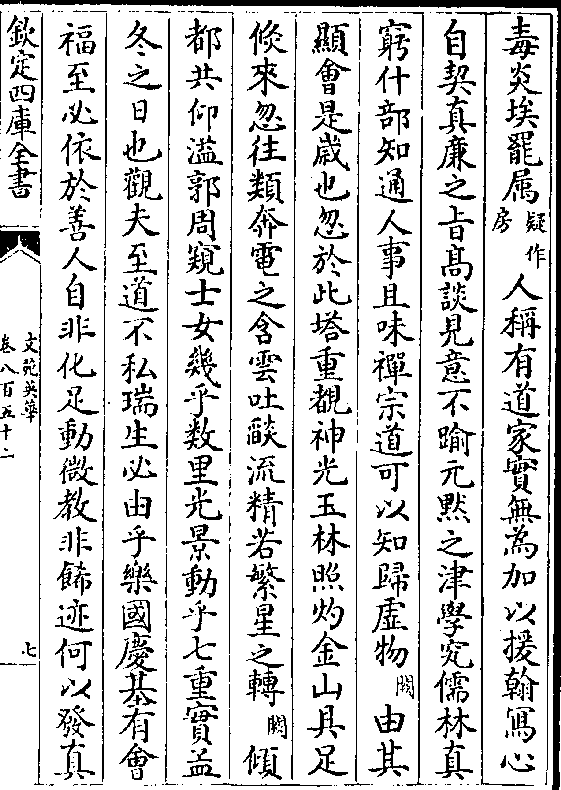 毒炎埃罷属疑作房人稱有道家實無為加以援翰寫心
自契真廉之旨髙談見意不踰元黙之津學究儒林真
窮什部知通人事且味禪宗道可以知歸虚物闕由其
顯會是歳也忽於此塔重覩神光玉林照灼金山具足
倐來忽往類奔電之含雲吐燄流精若繁星之轉闕傾
都共仰溢郭周窺士女幾乎数里光景動乎七重實葢
冬之日也觀夫至道不私瑞生必由乎樂國慶基有會
福至必依於善人自非化足動微教非餙迹何以發真
欽定四庫全書
文苑英華
卷八百五十二
七